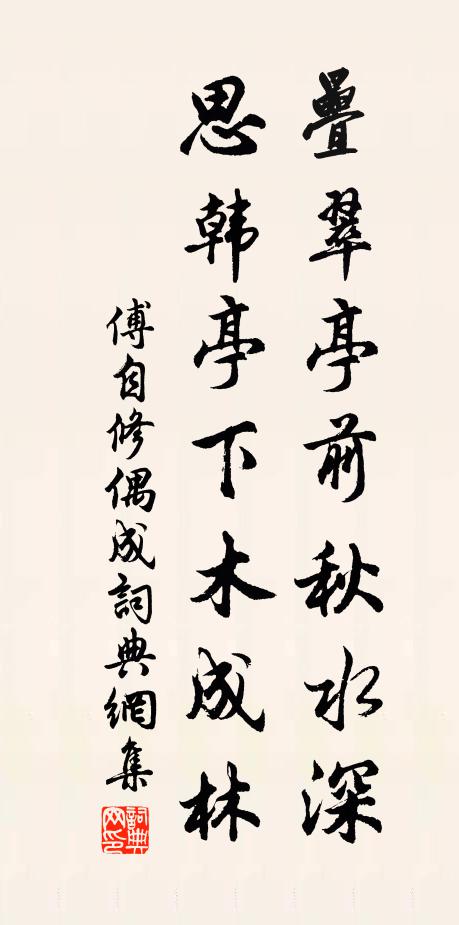 疊翠亭前秋水深
思韩亭下木成林
傅自修偶成詞典網集
詞典网印